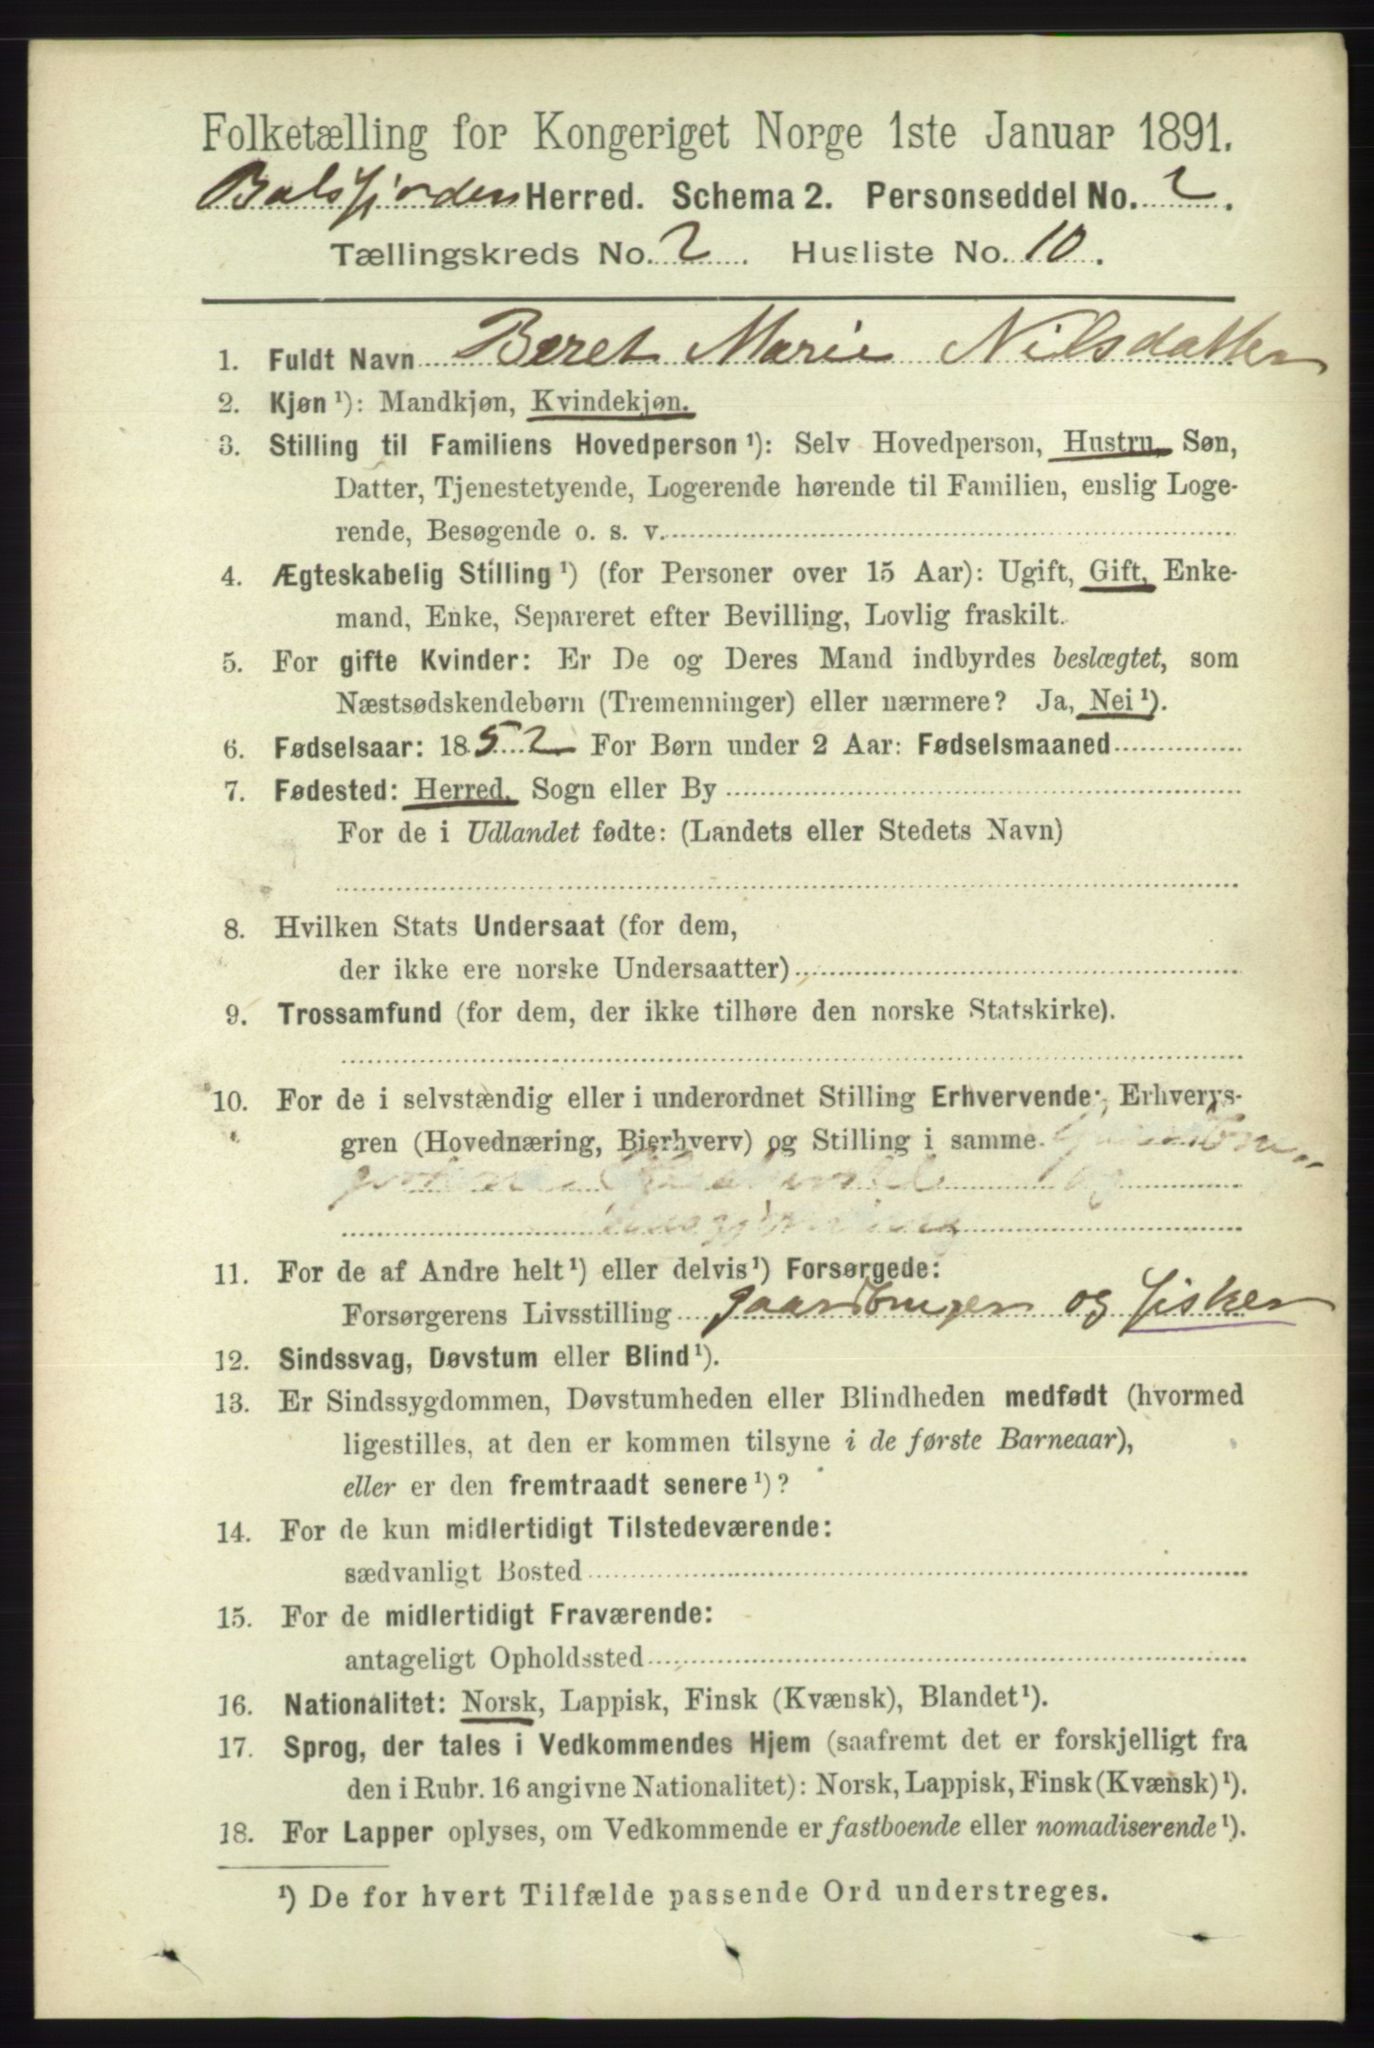 Folketælling for Kongeriget Norge 1ste Januar 1891.
Balsfjorden Herred. Schema 2. Personseddel No. 2.
Tællingskreds No. 2. Husliste No. 10.
1. Fuldt Navn Beret Marie Nilsdatter
2. Kjøn ¹): Mandkjøn, Kvindekjøn.
3. Stilling til Familiens Hovedperson ¹): Selv Hovedperson, Hustru, Søn,
Datter, Tjenestetyende, Logerende hørende til Familien, enslig Loge-
rende, Besøgende o. s. v.
4. Ægteskabelig Stilling ¹) (for Personer over 15 Aar): Ugift, Gift, Enke-
mand, Enke, Separeret efter Bevilling, Lovlig fraskilt.
5. For gifte Kvinder: Er De og Deres Mand indbyrdes beslægtet, som
Næstsødskendebørn (Tremenninger) eller nærmere? Ja, Nei ¹).
6. Fødselsaar: 1852 For Børn under 2 Aar: Fødselsmaaned
7. Fødested: Herred, Sogn eller By
For de i Udlandet fødte: (Landets eller Stedets Navn)
8. Hvilken Stats Undersaat (for dem,
der ikke ere norske Undersaatter)
9. Trossamfund (for dem, der ikke tilhøre den norske Statskirke).
10. For de i selvstændig eller i underordnet Stilling Erhvervende: Erhvervs-
gren (Hovednæring, Bierhverv) og Stilling i samme
og
11. For de af Andre helt ¹) eller delvis ¹) Forsørgede:
Forsørgerens Livsstilling gaardbruger og fisker
12. Sindssvag, Døvstum eller Blind ¹).
13. Er Sindssygdommen, Døvstumheden eller Blindheden medfødt (hvormed
ligestilles, at den er kommen tilsyne i de første Barneaar),
eller er den fremtraadt senere ¹)?
14. For de kun midlertidigt Tilstedeværende:
sædvanligt Bosted
15. For de midlertidigt Fraværende:
antageligt Opholdssted
16. Nationalitet: Norsk, Lappisk, Finsk (Kvænsk), Blandet ¹).
17. Sprog, der tales i Vedkommendes Hjem (saafremt det er forskjelligt fra
den i Rubr. 16 angivne Nationalitet): Norsk, Lappisk, Finsk (Kvænsk) ¹).
18. For Lapper oplyses, om Vedkommende er fastboende eller nomadiserende ¹).
¹) De for hvert Tilfælde passende Ord understreges.